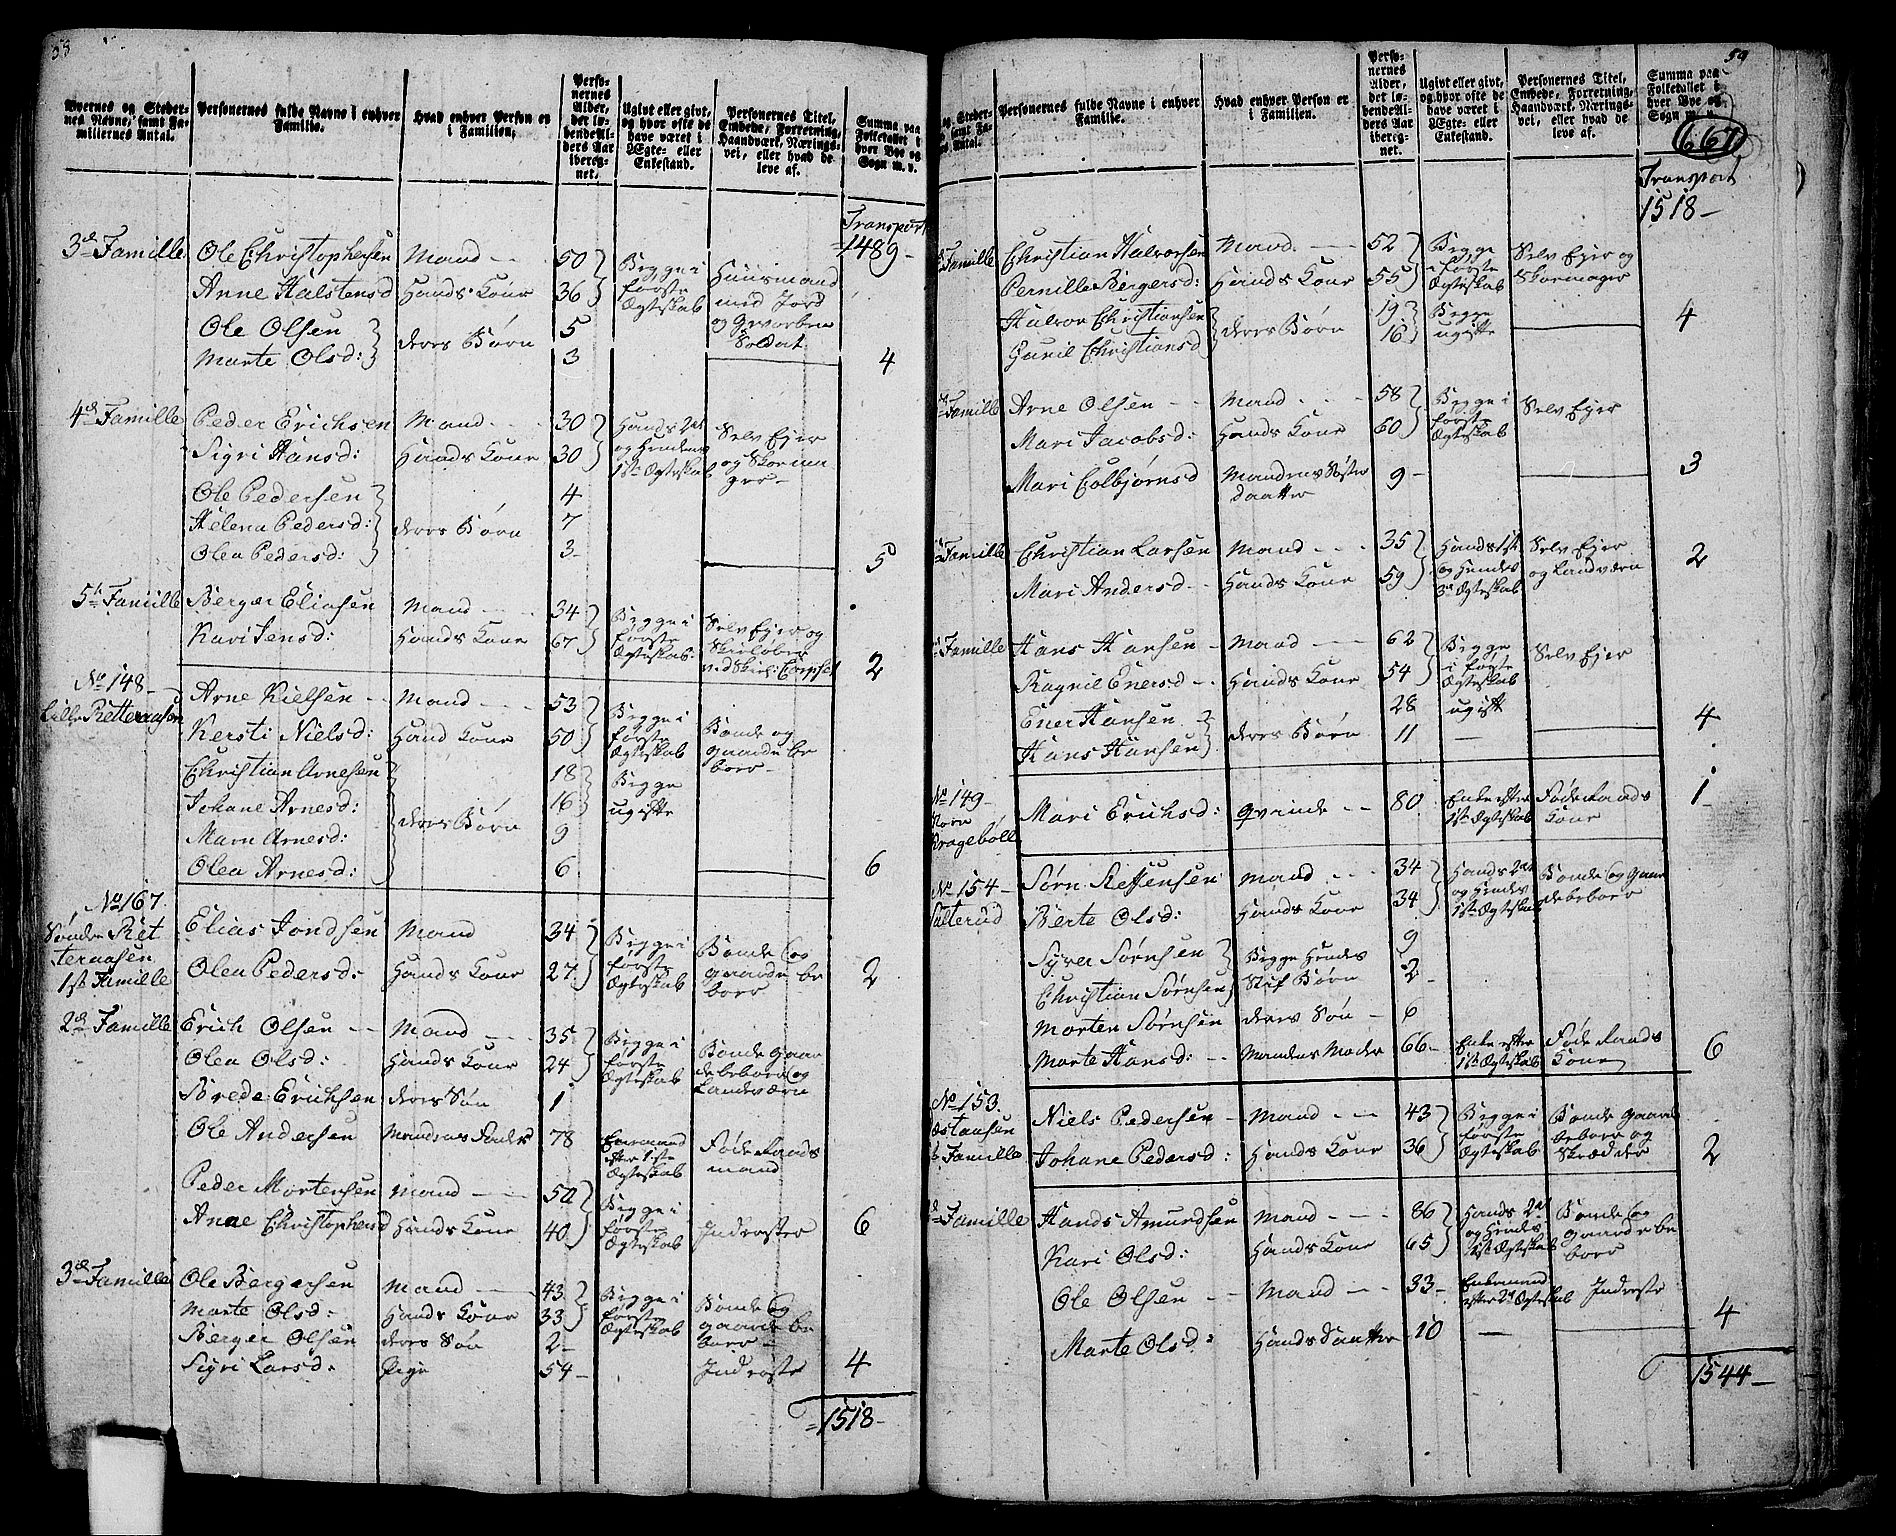 58
Byernes og Stedernes Navne, samt Familiernes Antal. | Personernes fulde Navne i enhver Familie. | Hvad enhver Person er i Familien. | Personernes Alder, det løbende Alders Aar iberegnet. | Ugivt eller givt, og hvor ofte de have været i Ægte- eller Enkestand. | Personernes Titel, Embede, Forretning, Haandværk, Næringsvei, eller hvad de leve af. | Summa paa Folketallet i hver Bye og Sogn m. v.
Transport 1489
3de Familie | Ole Christophersen | Mand | 50 | Begge i første Ægteskab | Huusmand med Jord og Gevorben Soldat
Anne Halstensd | Hands Kone | 36
Ole Olsen | deres Børn | 5
Marte Olsd: | 3 | 4
4de Familie | Peder Erichsen | Mand | 30 | Hands 2det og Hendes 1ste Ægteskab | Selv Ejer og Skomager
Sigri Hansd: | Hands Kone | 30
Ole Pedersen | deres Børn | 4
Helena Pedersd: | 7
Olea Pedersd: | 3 | 5
5te Familie | Berger Eliasen | Mand | 34 | Begge i første Ægteskab | Selv Ejer og Skieløber ved Skiel: Corpset
Kari Jensd: | Hands Kone | 67 | 2
No 148 Lille Retteraasen | Arne Nielsen | Mand | 53 | Begge i første Ægteskab | Bonde og gaardebeboer
Kersti Nielsd: | Hand Kone | 50
Christian Arnesen | deres Børn | 18 | Begge ugifte
Johane Arnesd: | 16
Maren Arnesd: | 9
Olea Arnesd: | 6 | 6
No 167 Søndre Retteraasen 1st Familie | Elias Jondsen | Mand | 34 | Begge i første Ægteskab | Bonde og gaardebeboer
Olea Pedersd: | Hands Kone | 27 | 2
2de Familie | Erich Olsen | Mand | 35 | Begge i første Ægteskab | Bonde Gaardebeboer og Landværn
Olea Olsd: | Hands Kone | 24
Brede Erichsen | deres Søn | 1
Ole Andersen | Mandens Fader | 78 | Enkemand efter 1ste Ægteskab | Føderaadsmand
Peder Mortensen | Mand | 50 | Begge i første Ægteskab | Inderster
Anne Christophersd | Hands Kone | 40 | 6
3de Familie | Ole Bergersen | Mand | 43 | Begge i første Ægteskab | Bonde og gaardebeboer
Marte Olsd: | Hands Kone | 33
Berger Olsen | deres Søn | 2
Sigri Larsd: | Pige | 54 | Inderste | 4
1518
59
667
og Steder- samt Fa- Antal. | Personernes fulde Navne i enhver Familie. | Hvad enhver Person er i Familien. | Personernes Alder, det løbende Alders Aar iberegnet. | Ugivt eller givt, og hvor ofte de have været i Ægte- eller Enkestand. | Personernes Titel, Embede, Forretning, Haandværk, Næringsvei, eller hvad de leve af. | Summa paa Folketallet i hver Bye og Sogn m. v.
Transport 1518
Familie | Christian Halvorsen | Mand | 52 | Begge i første Ægteskab | Selv Ejer og Skomager
Pernille Bergersd: | Hands Kone | 55
Halvor Christiansen | deres Børn | 19 | Begge ugifte
Gunil Christiansd | 16 | 4
Familie | Arne Olsen | Mand | 58 | Begge i første Ægteskab | Selv Ejer
Mari Jacobsd: | Hands Kone | 60
Mari Colbjørnsd | Mandens Søster Daatter | 9 | 3
Familie | Christian Larsen | Mand | 35 | Hands 1st og Hendes 3de Ægteskab | Selv Ejer og Landværn
Mari Andersd | Hands Kone | 59 | 2
Familie | Hans Hansen | Mand | 62 | Begge i første Ægteskab | Selv Ejer
Ragnil Enersd | Hands Kone | 54
Ener Hansen | deres Børn | 28 | ugift
Hans Hansen | 11 | — | 4
No 149 | Mari Erichsd: | Qvinde | 80 | Enke efter 1ste Ægteskab | Føderaads Kone | 1
No 154 Sætterud | Sørn Steffensen | Mand | 34 | Hands 2det og Hendes 1st Ægteskab | Bonde og Gaardebeboer
Berte Olsd: | Hands Kone | 34
Syver Sørnsen | Begge Hendes Stif Børn | 9
Christian Sørnsen | 2
Morten Sørnsen | deres Søn | 6
Marte Hansd: | Mandens Moder | 66 | Enke efter 1ste Ægteskab | Føderaads Kone | 6
No 153 Familie | Niels Pedersen | Mand | 43 | Begge i første Ægteskab | Bonde Gaardbeboer og Skrædder
Johane Pedersd: | Hands Kone | 36 | 2
Familie | Hands Amundsen | Mand | 86 | Hands 2det og Hendes 1st Ægteskab | Bonde og gaardebeboer
Kari Olsd: | Hands Kone | 65
Ole Olsen | Mand | 33 | Enkemand efter 2det Ægteskab | Inderste
Marte Olsd: | Hands Daatter | 10 | — | 4
1544